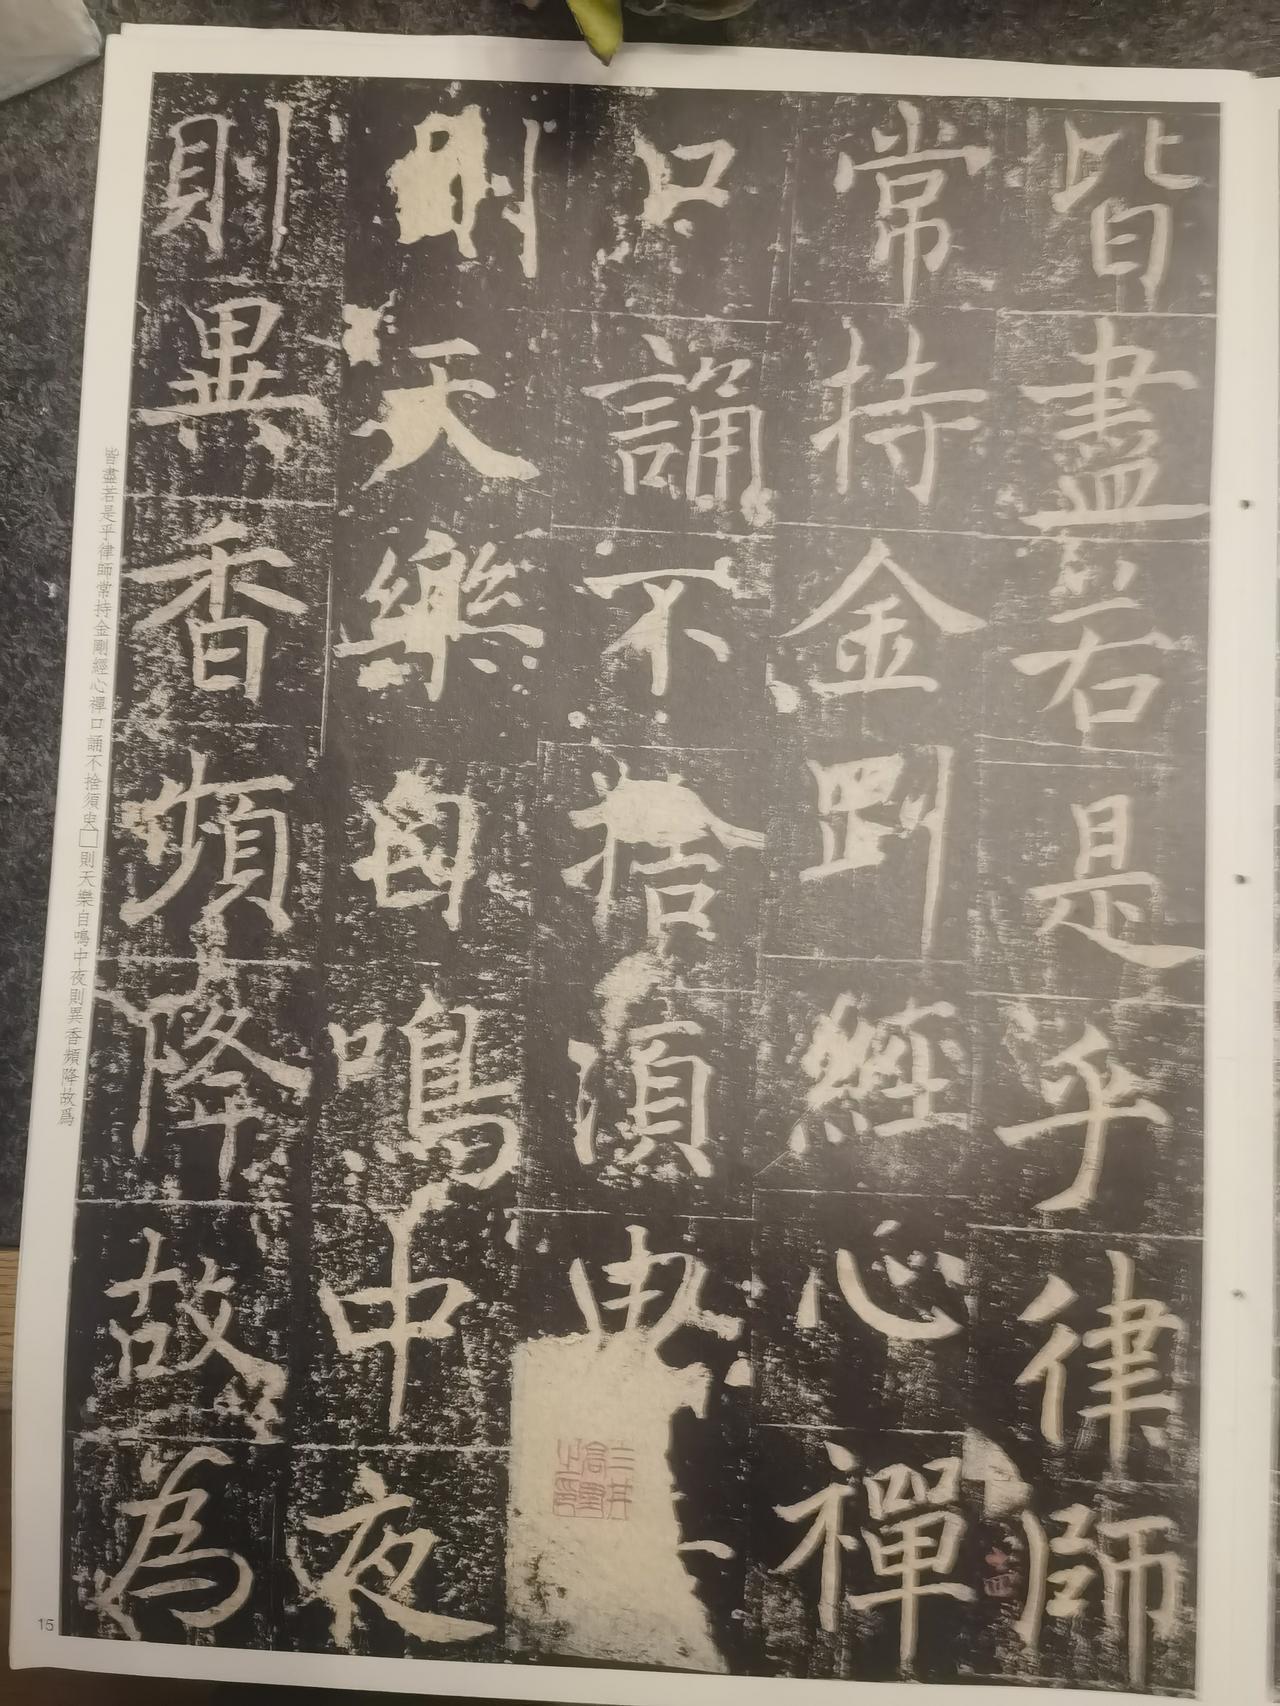 皆盡若是乎律師
常持金剛經心禪
口誦不捨須臾
則天樂自鳴中夜
則異香頻降故爲
皆盡若是乎律師常持金剛經心禪口誦不捨須臾□則天樂自鳴中夜則異香頻降故爲
15